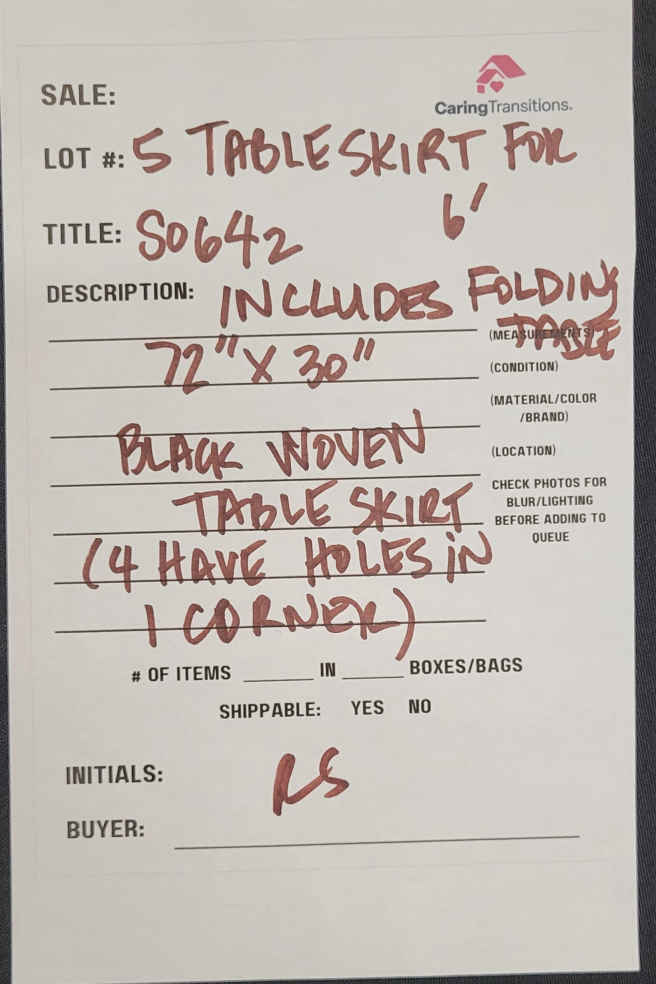 SALE:
CaringTransitions.
LOT #: 5 TABLE SKIRT FOR
6'
TITLE: S0642
DESCRIPTION: INCLUDES FOLDING
TABLE
(MEASUREMENTS)
72" X 30"
(CONDITION)
(MATERIAL/COLOR
/BRAND)
BLACK WOVEN
(LOCATION)
TABLE SKIRT
CHECK PHOTOS FOR
BLUR/LIGHTING
BEFORE ADDING TO
QUEUE
(4 HAVE HOLES IN
1 CORNER)
# OF ITEMS ______ IN ______ BOXES/BAGS
SHIPPABLE: YES NO
INITIALS: RS
BUYER: